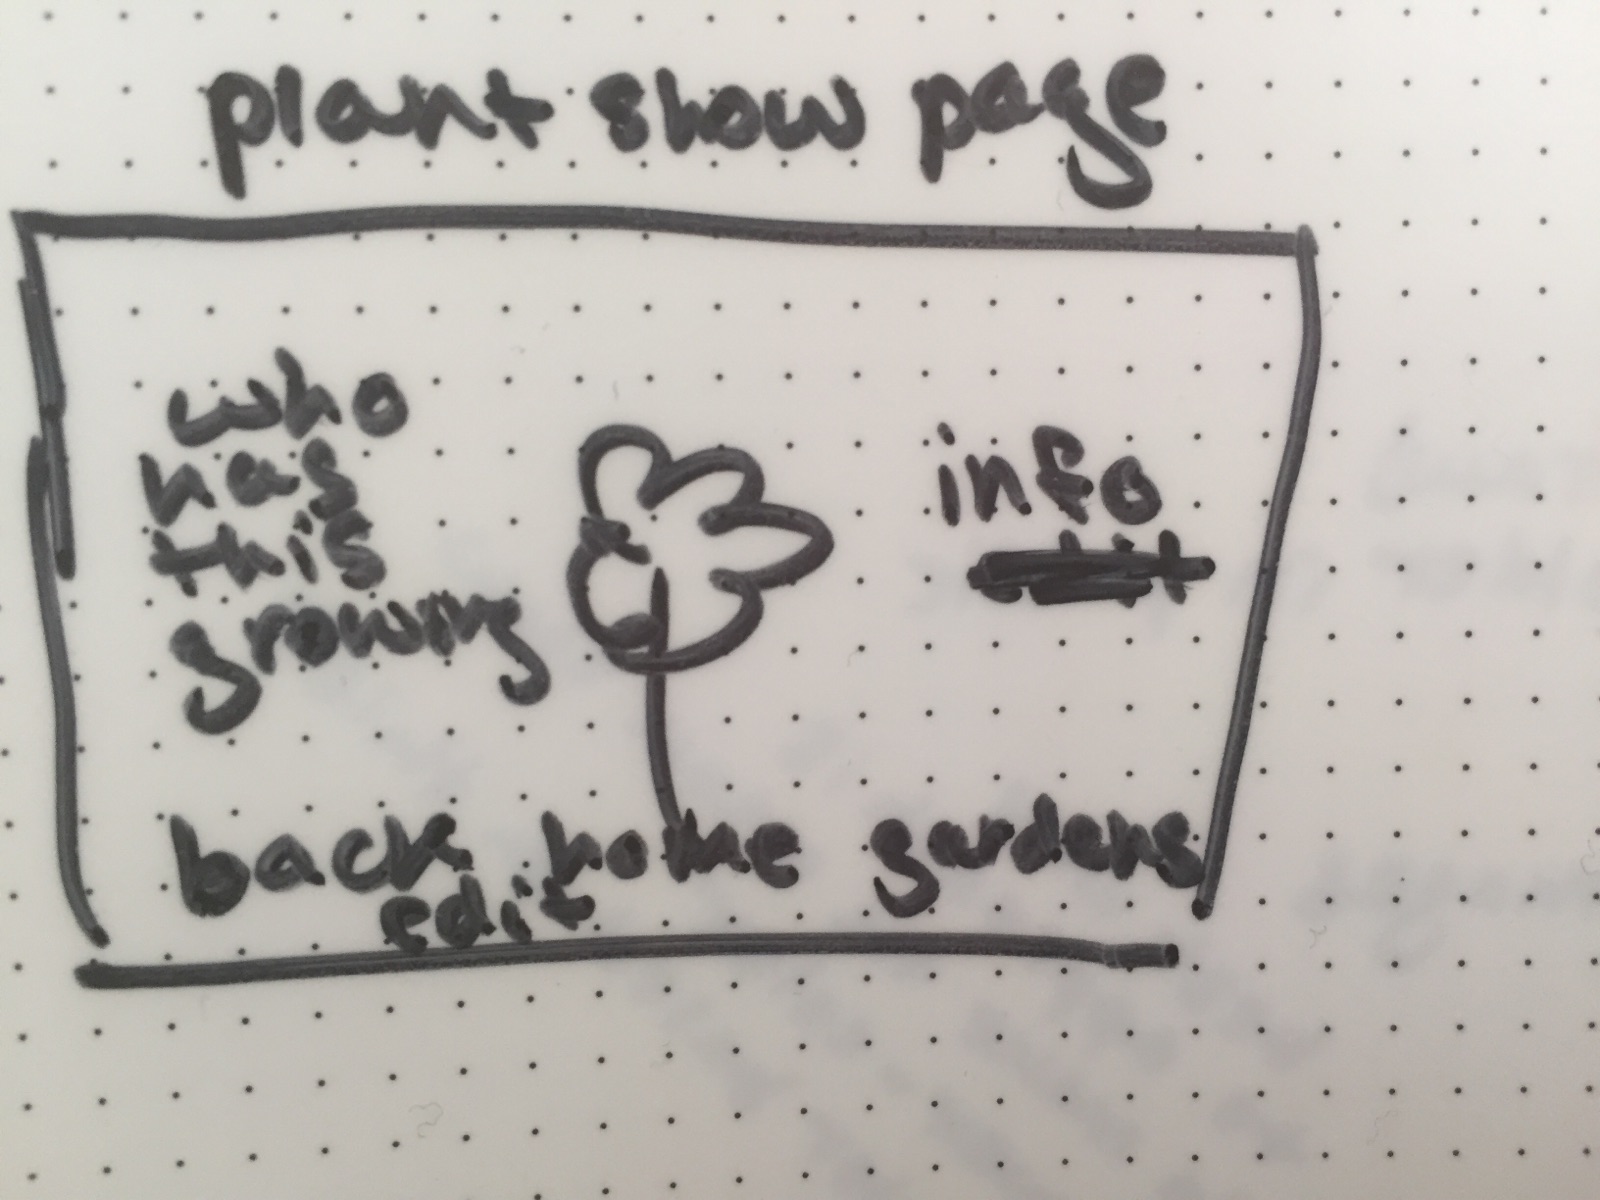 plant show page
who
has
this
growing
info
back home gardens
edit